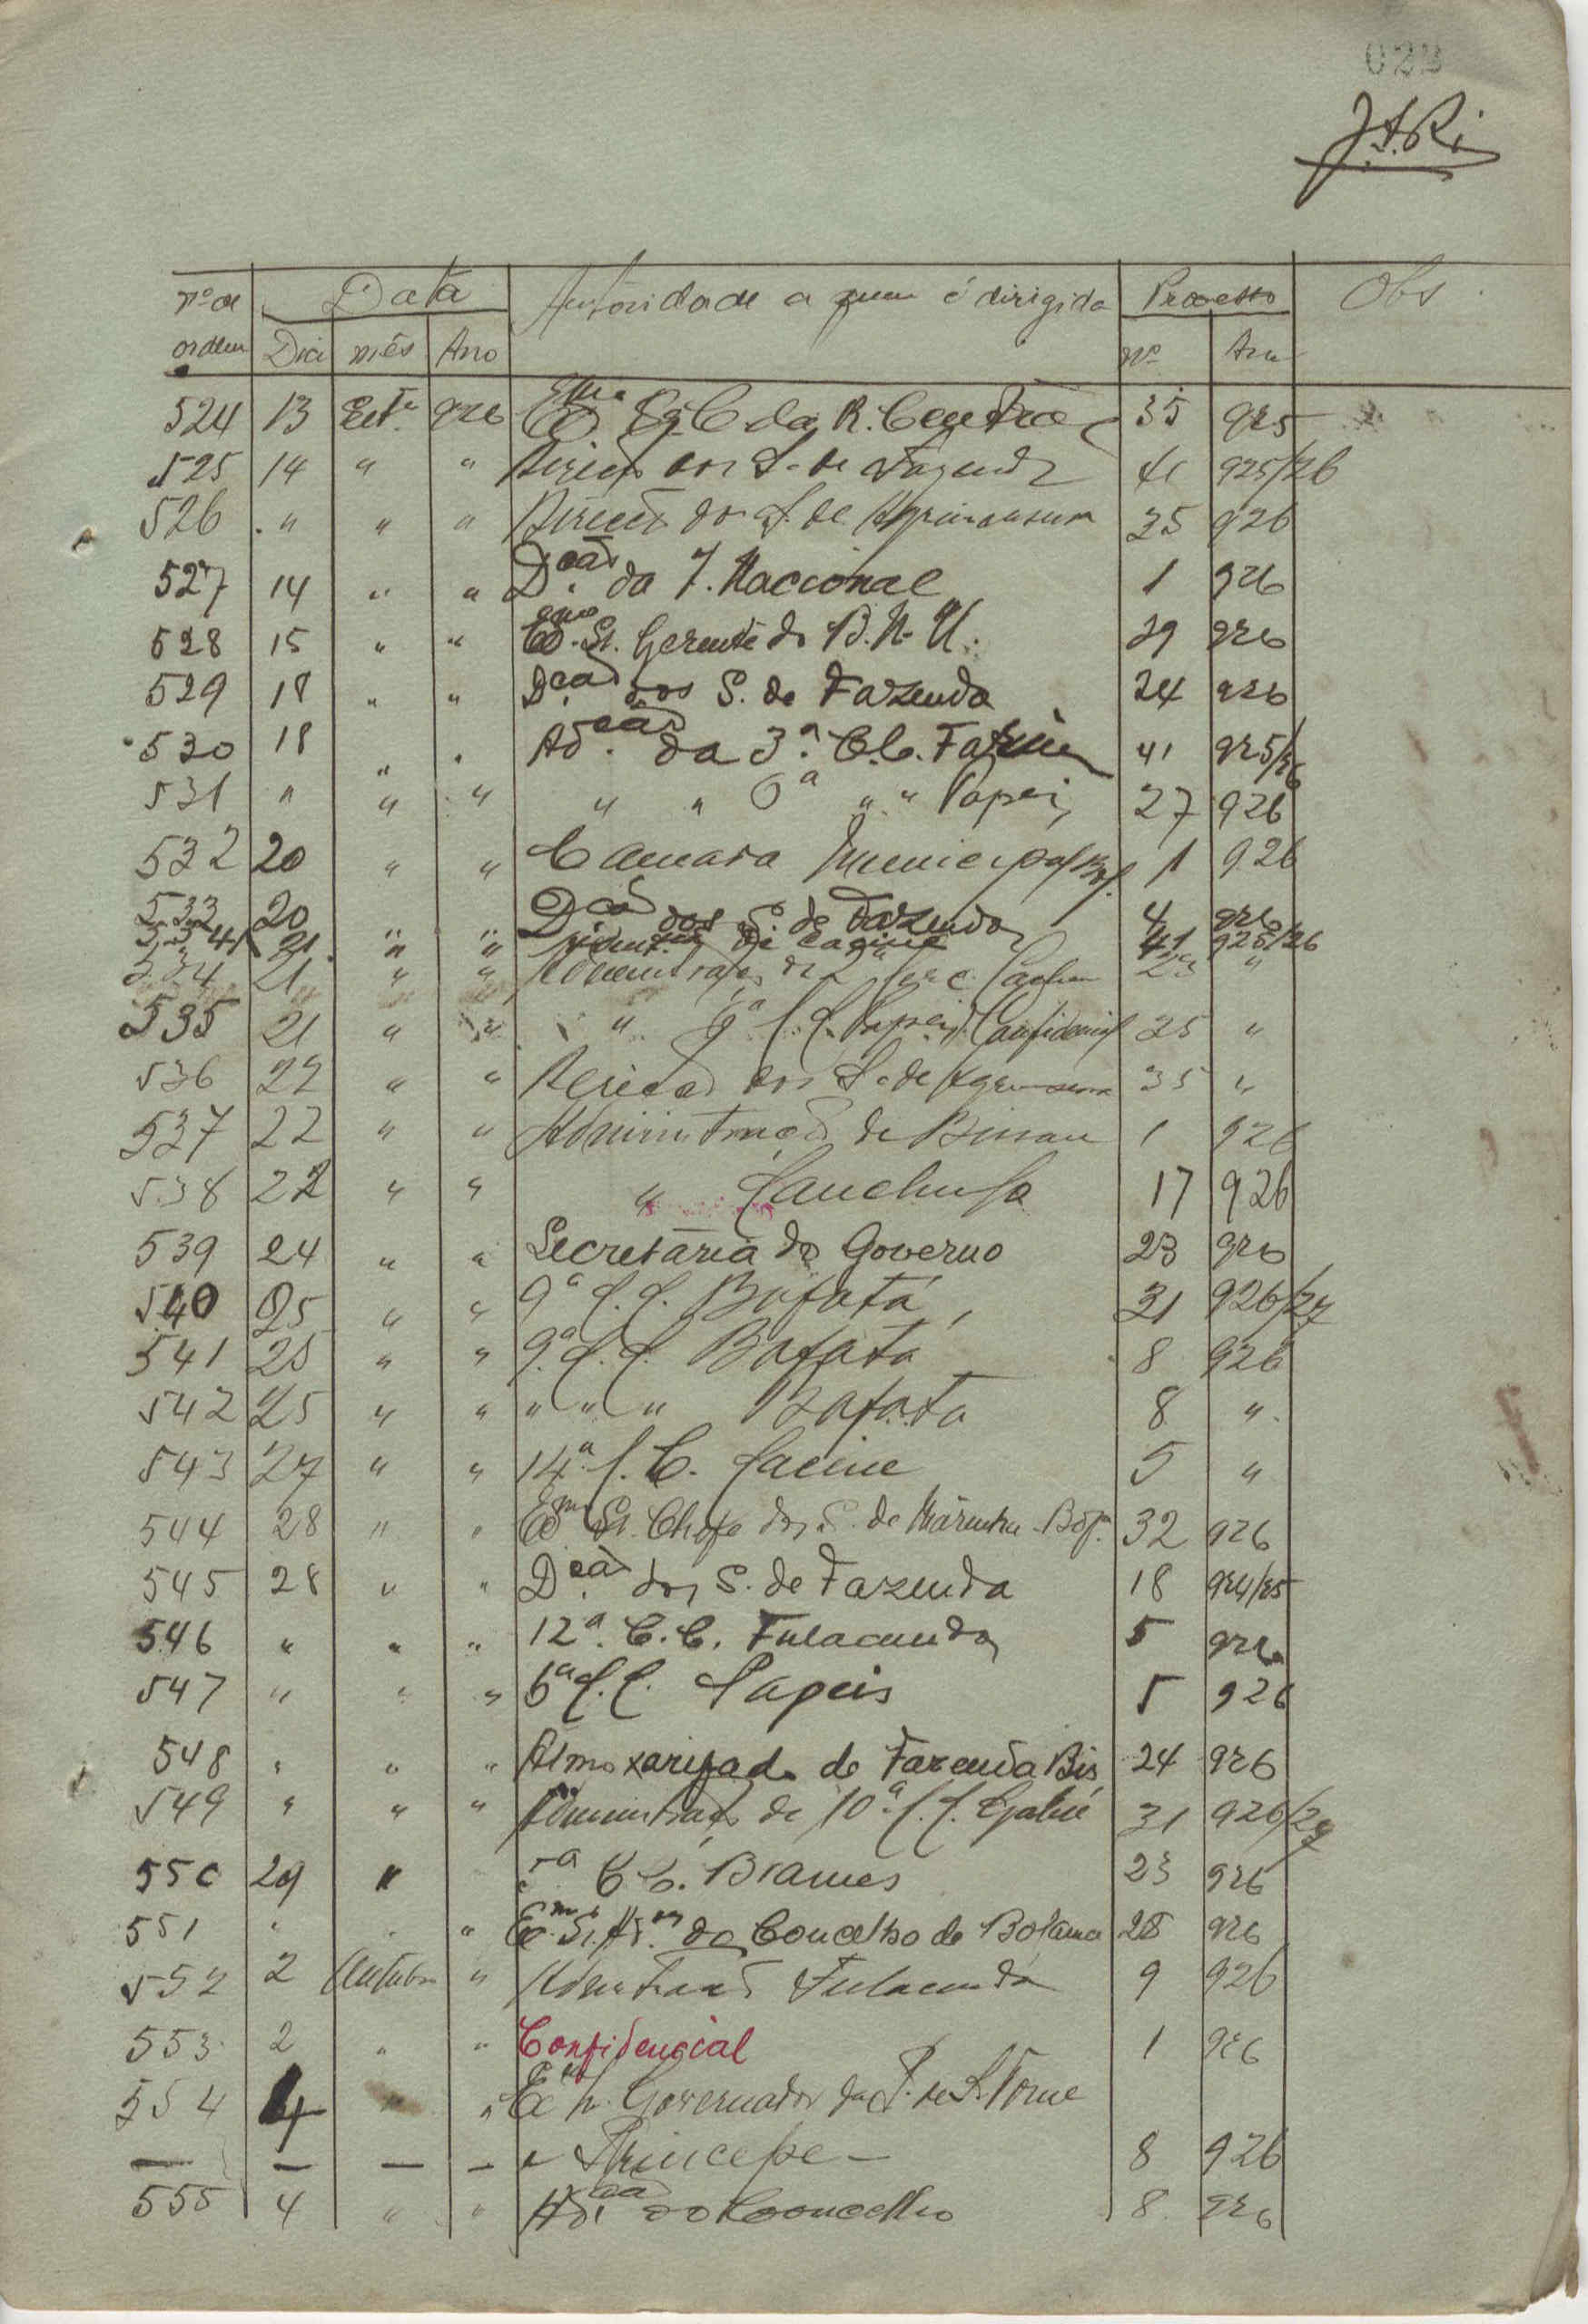 022
nº de Data Autoridade a quem é dirigida Processo Obs.
ordem Dia mês Ano Nº Ano
524 13 Set.º 926 Exmo Sr. C. da R. Central 35 925
525 14 " " Direcção dos S. de Fazenda 41 925/26
526 " " " Direcção dos S. de Agrimensura 35 926
527 14 " " D.cção da I. Nacional 1 926
528 15 " " Exmo Sr. Gerente do B. N. U. 29 926
529 18 " " D.cção dos S. de Fazenda 24 926
530 18 " " Ad.ção da 3.ª C.C. Farim 41 925/26
531 " " " " " 6ª " " Papeis 27 926
532 20 " " Camara Municipal Bol. 1 926
533 20 " " D.cção dos S. de Fazenda 4 926
21 " " de Cacine 41 925/26
534 21 " " Administração da 2ª 23 "
535 21 " " " 6ª C.C. Papeis Confidencial 25 "
536 22 " " Direcção dos S. de Agrimensura 35 "
537 22 " " Administração de Bissau 1 926
538 22 " " " Canchungo 17 926
539 24 " " Secretaria do Governo 23 926
540 25 " " 9ª C.C. Bafatá 31 926/27
541 25 " " 9ª C.C. Bafatá 8 926
542 25 " " " " " Bafatá 8 "
543 27 " " 14ª C.C. Cacine 5 "
544 28 " " Exm Sr. Chefe dos S. de Marinha Bol.ª 32 926
545 28 " " D.cção dos S. de Fazenda 18 924/25
546 " " " 12ª. C.C. Fulacunda 5 926
547 " " " 6ª C.C. Papeis 5 926
548 " " " Almoxarifado de Fazenda Bis 24 926
549 " " " Administração da 10ª C.C. Gabú 31 926/27
550 29 " 5ª C.C. Brames 23 926
551 " " " Exmo Sr. Ad.or do Concelho de Bolama 28 926
552 2 Outubro " Administração Fulacunda 9 926
553 2 " " Confidencial 1 926
554 4 " " Exmo Sr. Governador da P. de S. Tome
— — — — e Principe — 8 926
555 4 " " Ad.ção do Concelho 8 926